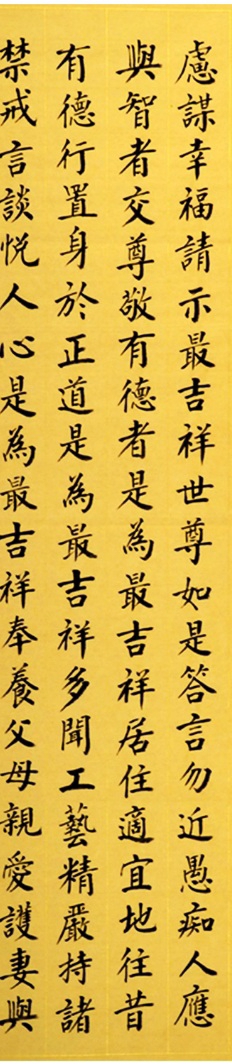 慮謀幸福請示最吉祥世尊如是答言勿近愚痴人應
與智者交尊敬有德者是為最吉祥居住適宜地往昔
有德行置身於正道是為最吉祥多聞工藝精嚴持諸
禁戒言談悅人心是為最吉祥奉養父母親愛護妻與